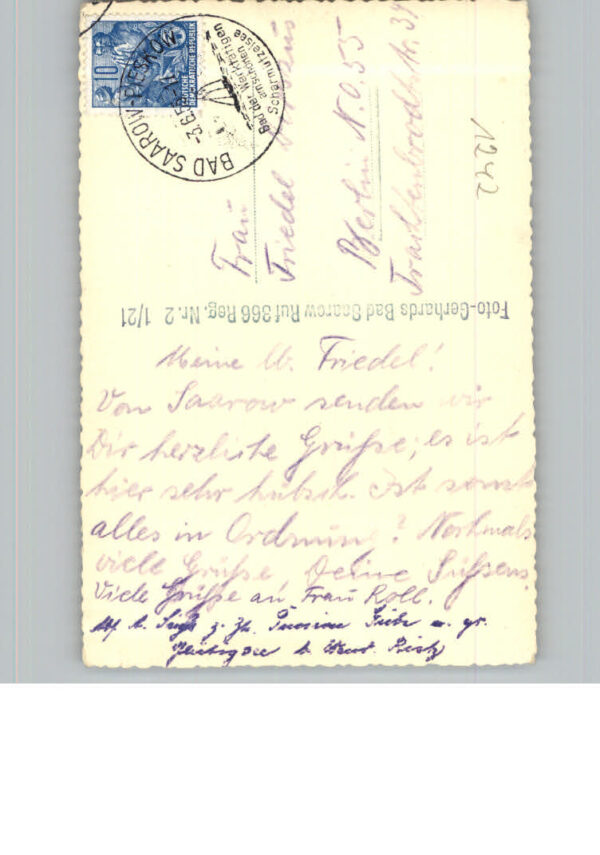 10
DEUTSCHE
DEMOKRATISCHE REPUBLIK
BAD SAAROW-PIESKOW
-3.6.5
Bad der Werktätigen
am schönen
Scharmützelsee
Frau
Friedel
Berlin N.O. 55
Trachtenbrodtstr. 34
1242
Foto-Gerhards Bad Saarow Ruf 366 Reg. Nr. 2 1/21
Meine lb. Friedel!
Von Saarow senden wir
Dir herzliche Grüße; es ist
hier sehr hübsch. Ist sonst
alles in Ordnung? Nochmals
viele Grüße Deine Süßens.
Viele Grüße an Frau Roll.
z. Zt. Pension